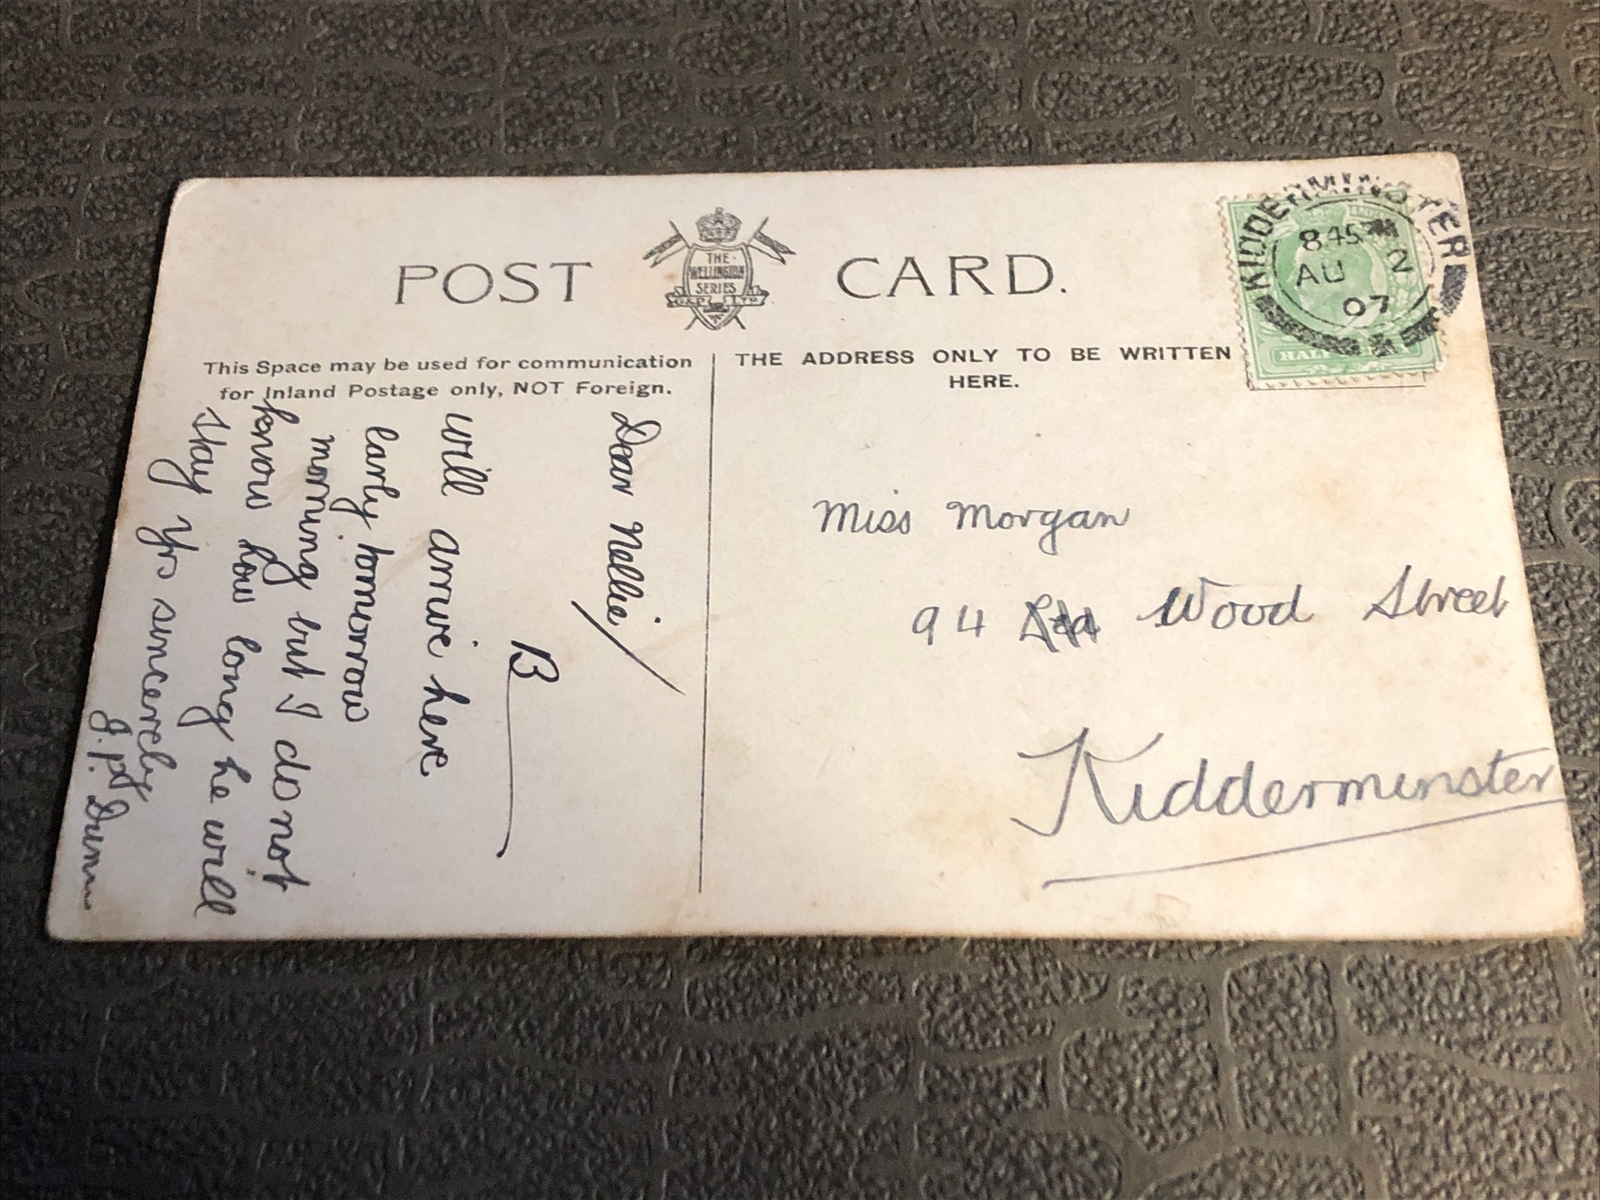 POST CARD.
THE
WELLINGTON
SERIES
G&P LTD
This Space may be used for communication
for Inland Postage only, NOT Foreign.
THE ADDRESS ONLY TO BE WRITTEN
HERE.
KIDDERMINSTER
845
AU 2
07
HALF
Dear Nellie/
B
will arrive here
early tomorrow
morning but I do not
know how long he will
stay Yrs sincerely
J. P. Dunn
Miss Morgan
94 Wood Street
Kidderminster